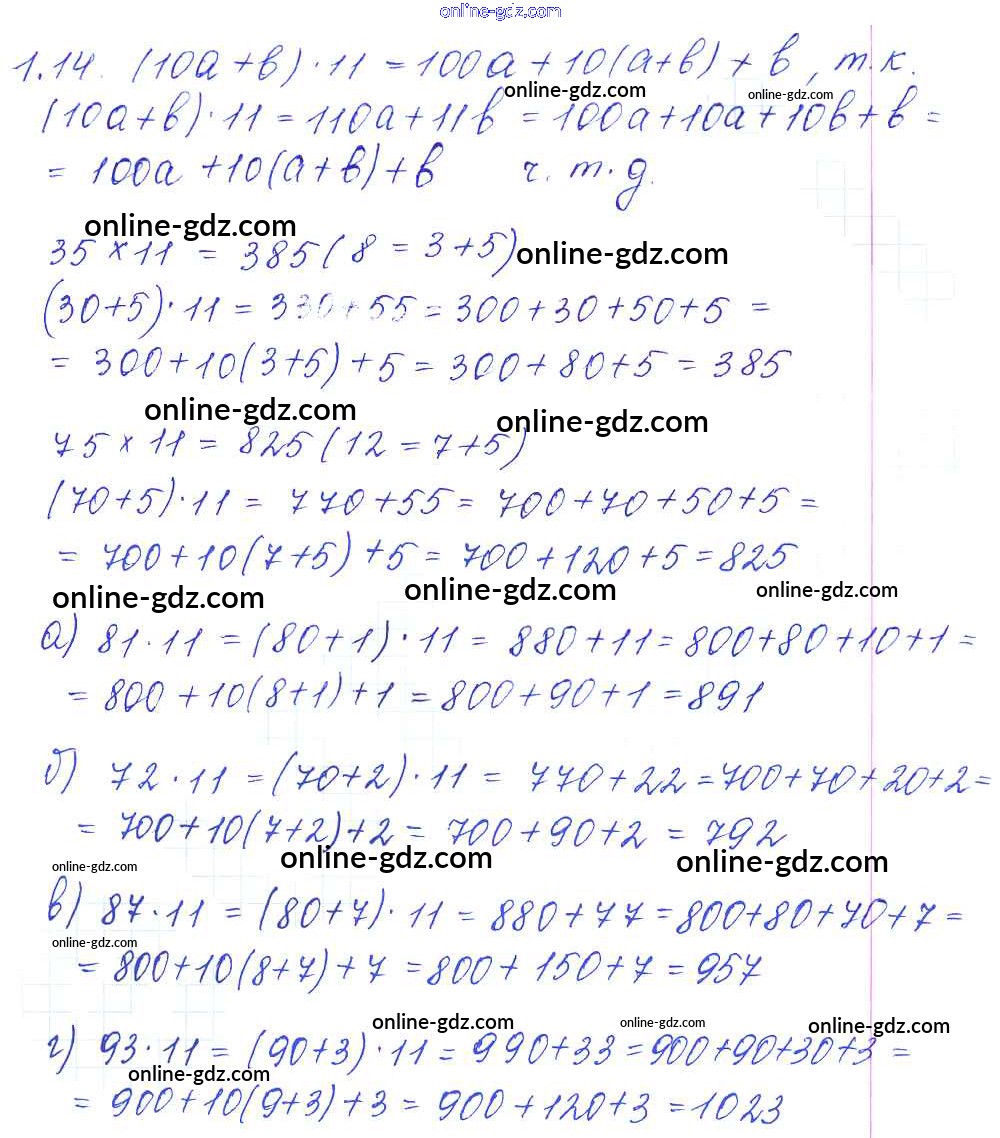 online-gdz.com
1.14. (10a+b)·11 = 100a+10(a+b)+b, т.к.
online-gdz.com online-gdz.com
(10a+b)·11 = 110a+11b = 100a+10a+10b+b =
= 100a+10(a+b)+b ч.т.д.
online-gdz.com
35 × 11 = 385 (8 = 3+5)
online-gdz.com
(30+5)·11 = 330+55 = 300+30+50+5 =
= 300+10(3+5)+5 = 300+80+5 = 385
online-gdz.com online-gdz.com
75 × 11 = 825 (12 = 7+5)
(70+5)·11 = 770+55 = 700+70+50+5 =
= 700+10(7+5)+5 = 700+120+5 = 825
online-gdz.com online-gdz.com online-gdz.com
а) 81·11 = (80+1)·11 = 880+11 = 800+80+10+1 =
= 800+10(8+1)+1 = 800+90+1 = 891
б) 72·11 = (70+2)·11 = 770+22 = 700+70+20+2 =
= 700+10(7+2)+2 = 700+90+2 = 792
online-gdz.com online-gdz.com online-gdz.com
в) 87·11 = (80+7)·11 = 880+77 = 800+80+70+7 =
online-gdz.com
= 800+10(8+7)+7 = 800+150+7 = 957
online-gdz.com online-gdz.com online-gdz.com
г) 93·11 = (90+3)·11 = 990+33 = 900+90+30+3 =
online-gdz.com
= 900+10(9+3)+3 = 900+120+3 = 1023